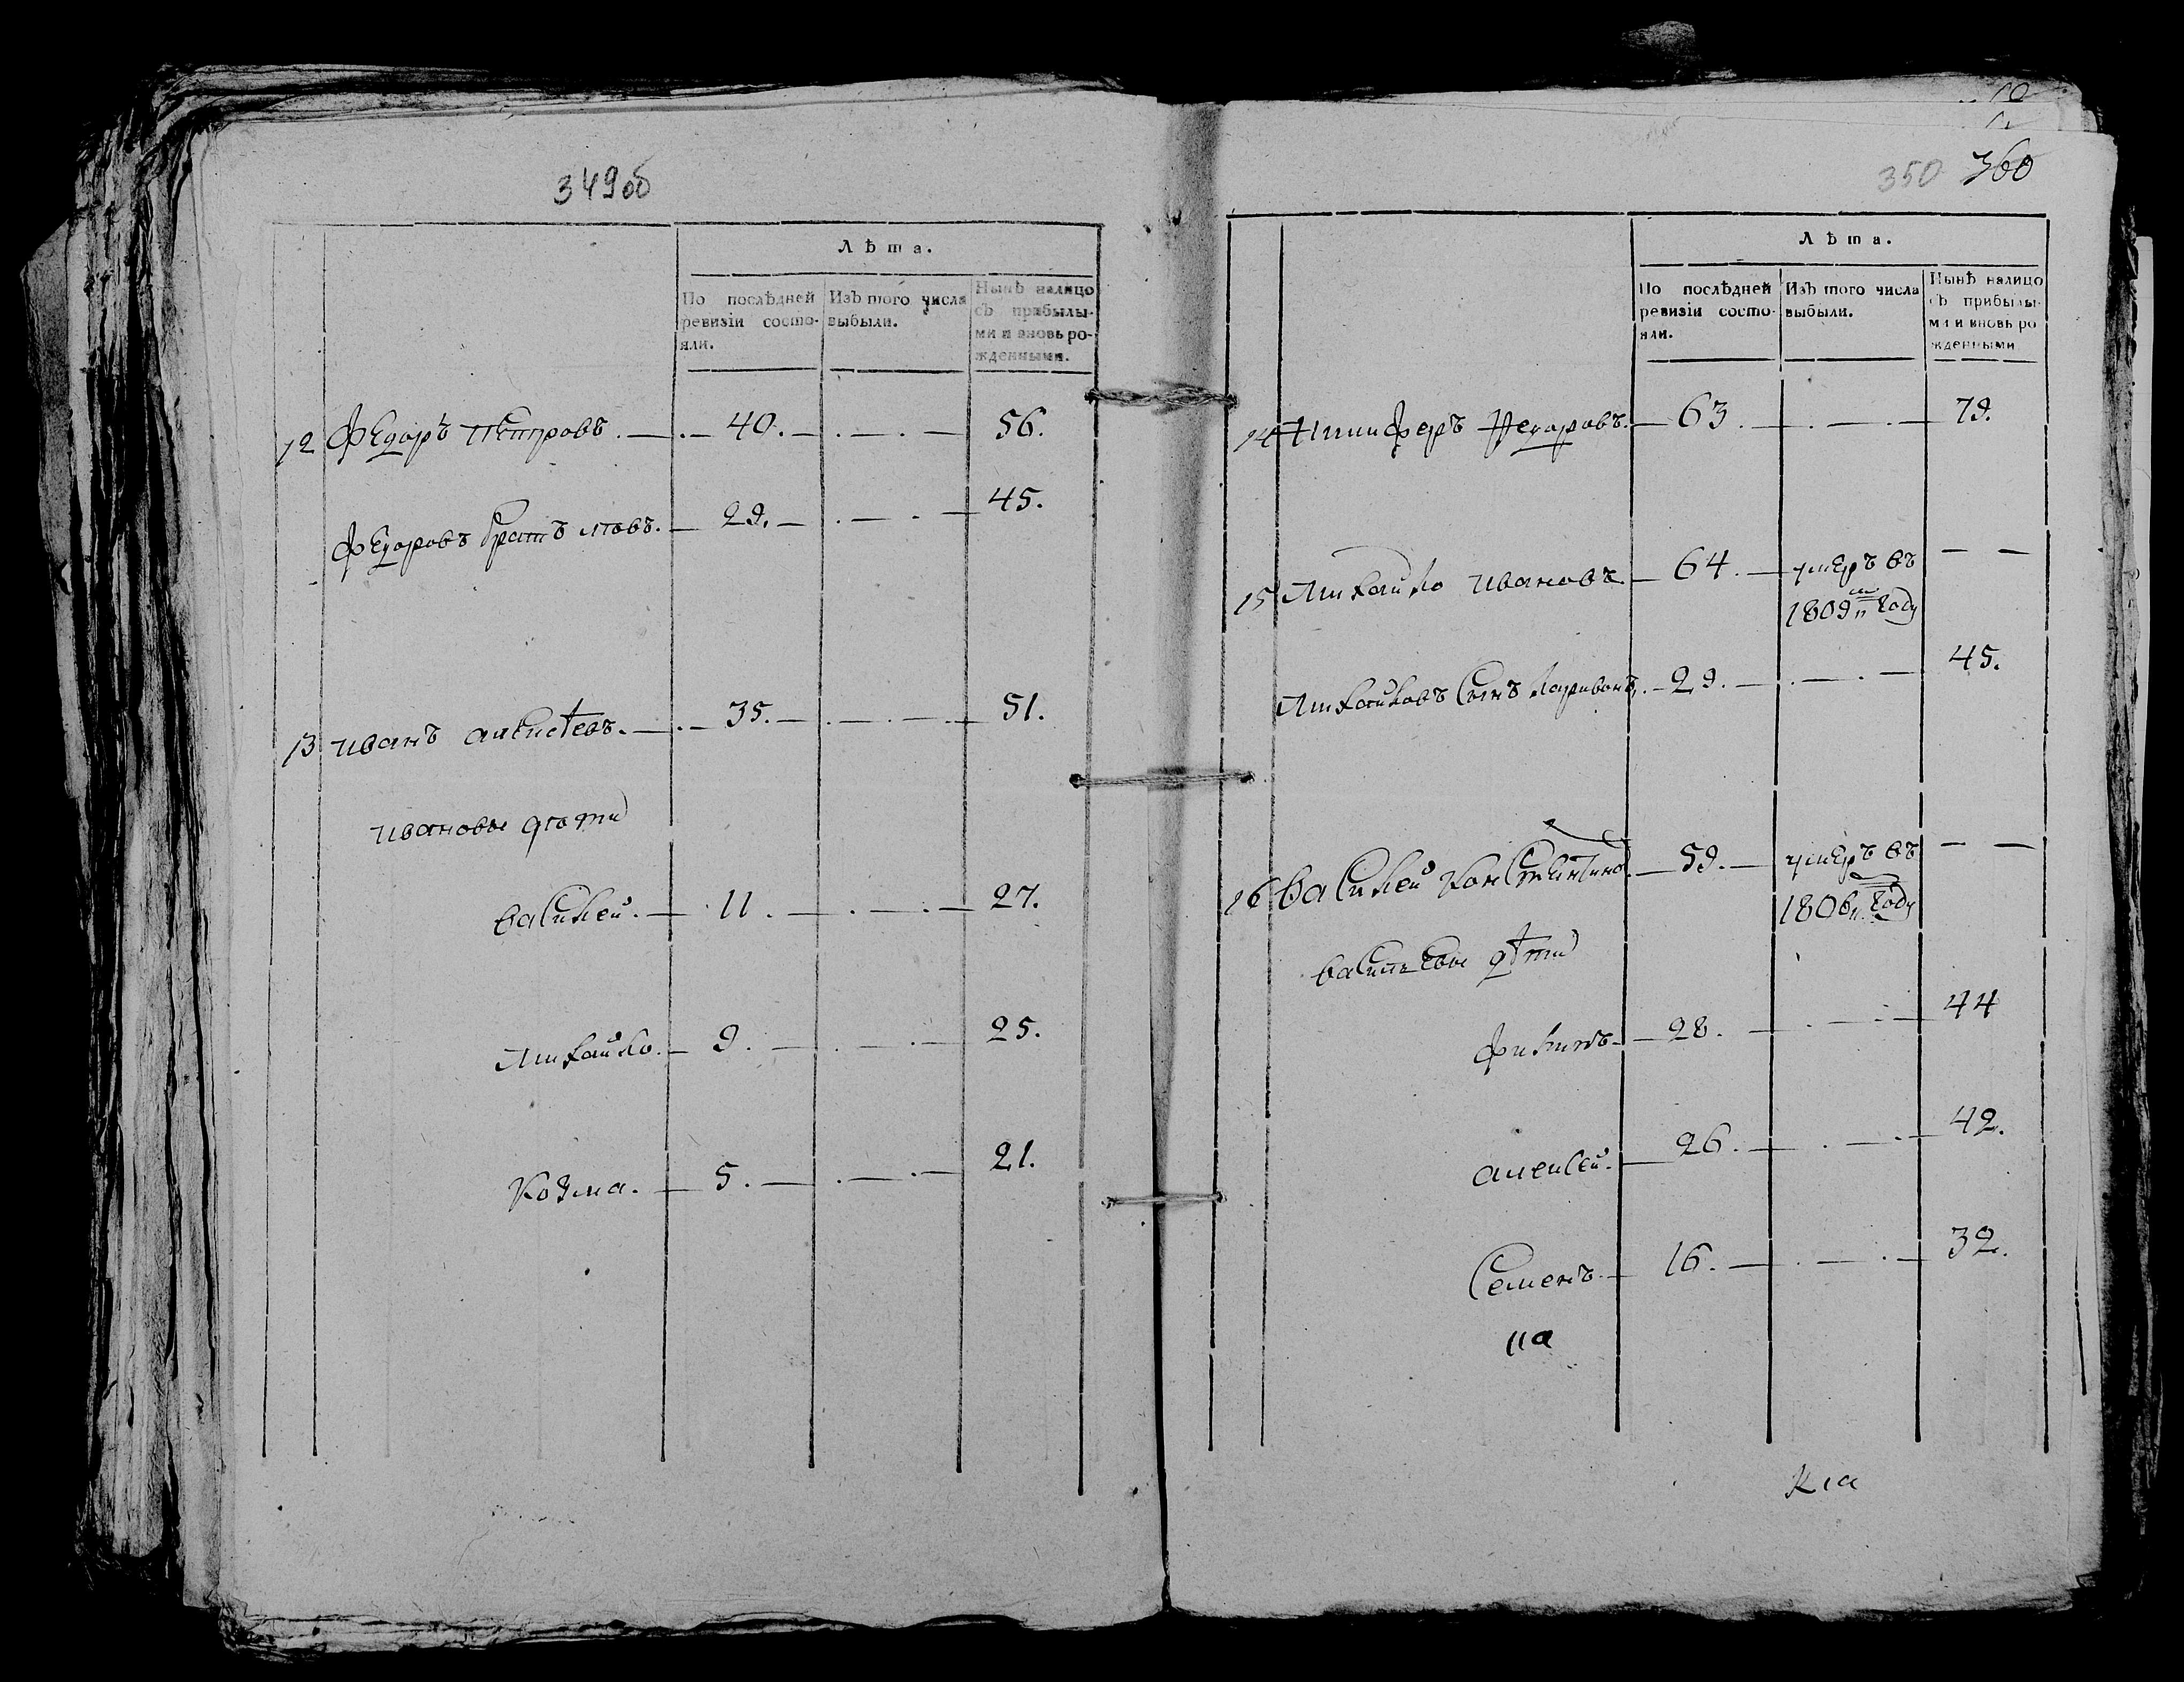 349об
Лѣта.
По послѣдней ревизіи состо-яли.
Изъ того числа выбыли.
Нынѣ налицо съ прибылы-ми и вновь ро-жденными.
12 Федоръ Петровъ. 40. 56.
Федоровъ братъ Иовъ. 29. 45.
13 Иванъ Алексѣевъ. 35. 51.
Ивановы дѣти
Василей. 11. 27.
Михайло. 9. 25.
Козма. 5. 21.
350 360
Лѣта.
По послѣдней ревизіи состо-яли.
Изъ того числа выбыли.
Нынѣ налицо съ прибылы-ми и вновь ро-жденными
14 Никифоръ Федоровъ. 63. 79.
15 Михайло Ивановъ. 64. умеръ въ
1809м году
Михайловъ сынъ Ларивонъ. 29. 45.
16 Василей Констентинов. 59. умеръ въ
1806м году
Васильевы дѣти
Филипъ 28. 44
Алексей. 26. 42.
Семенъ. 16. 32.